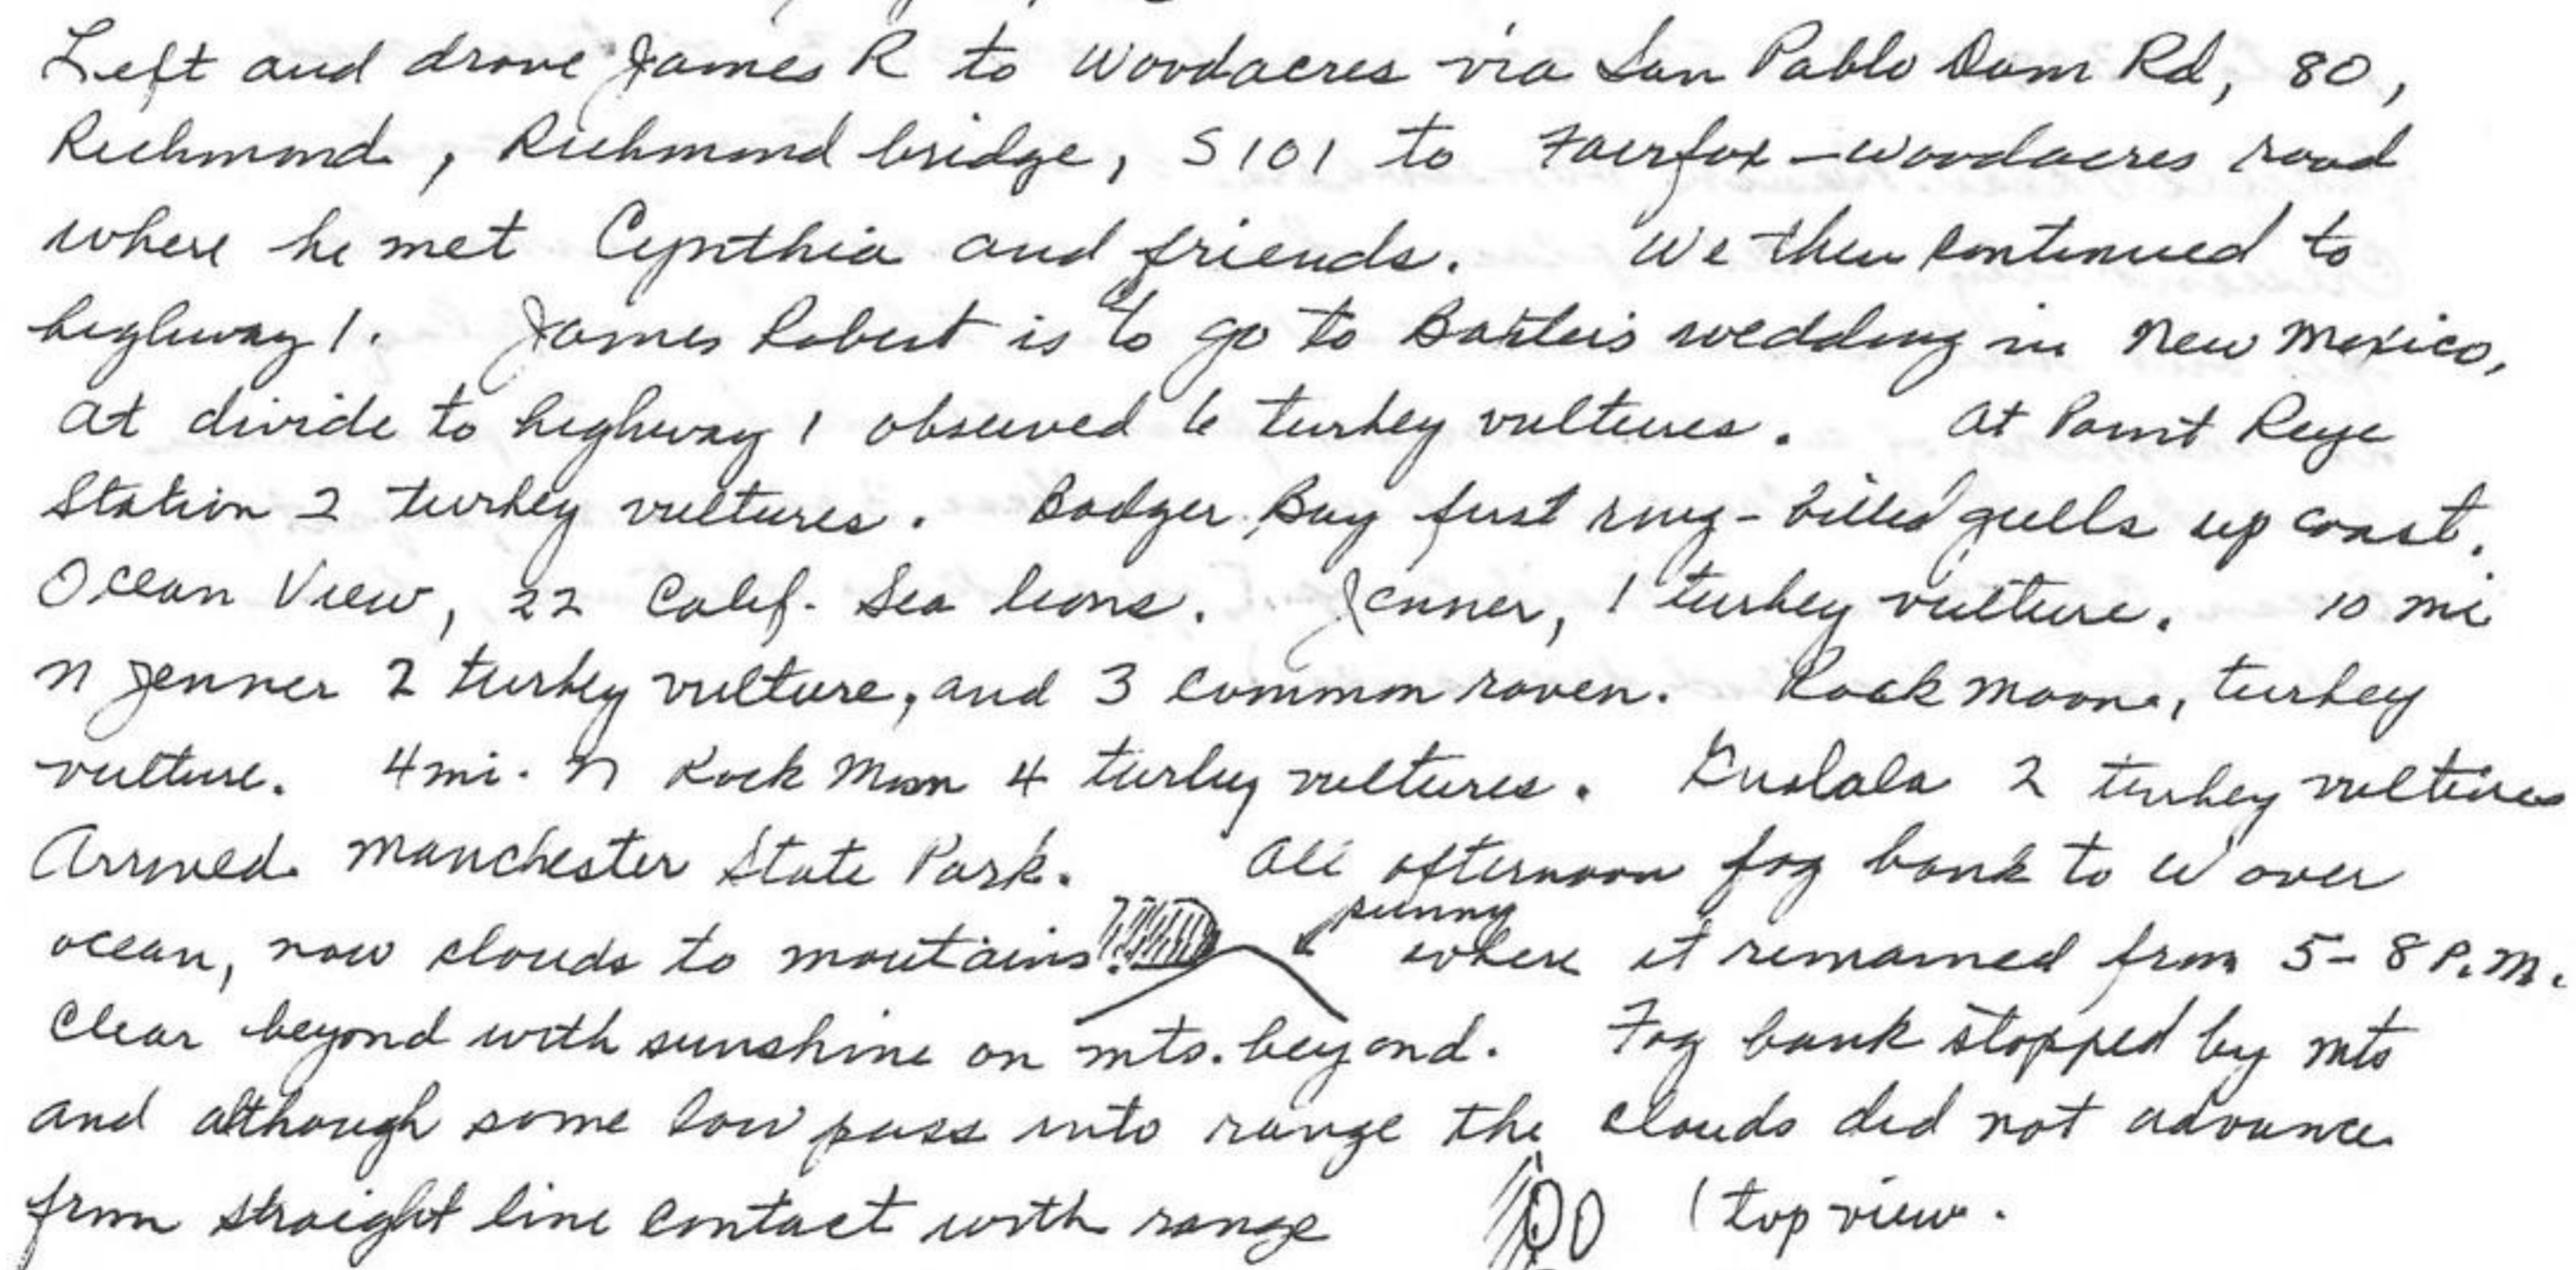 Left and drove James R to Woodacres via San Pablo Dam Rd, 80,
Richmond, Richmond bridge, S 101 to Fairfax - Woodacres road
where he met Cynthia and friends. We then continued to
highway 1. James Robert is to go to wedding in New Mexico,
at divide to highway 1 observed 6 turkey vultures. At Point Reye
Station 2 turkey vultures. Bodger Bay first ring-billed gulls up coast.
Ocean View, 22 Calif. Sea lions. Jenner, 1 turkey vulture. 10 mi
N Jenner 2 turkey vulture, and 3 common raven. Rock moon, turkey
vulture. 4 mi. N Rock Moon 4 turkey vultures. Gualala 2 turkey vultures
Arrived Manchester State Park. All afternoon fog bank to W over
sunny
ocean, now clouds to moutains. where it remained from 5-8 P.M.
Clear beyond with sunshine on mts. beyond. Fog bank stopped by mts
and although some low pass into range the clouds did not advance
from straight line contact with range (top view.